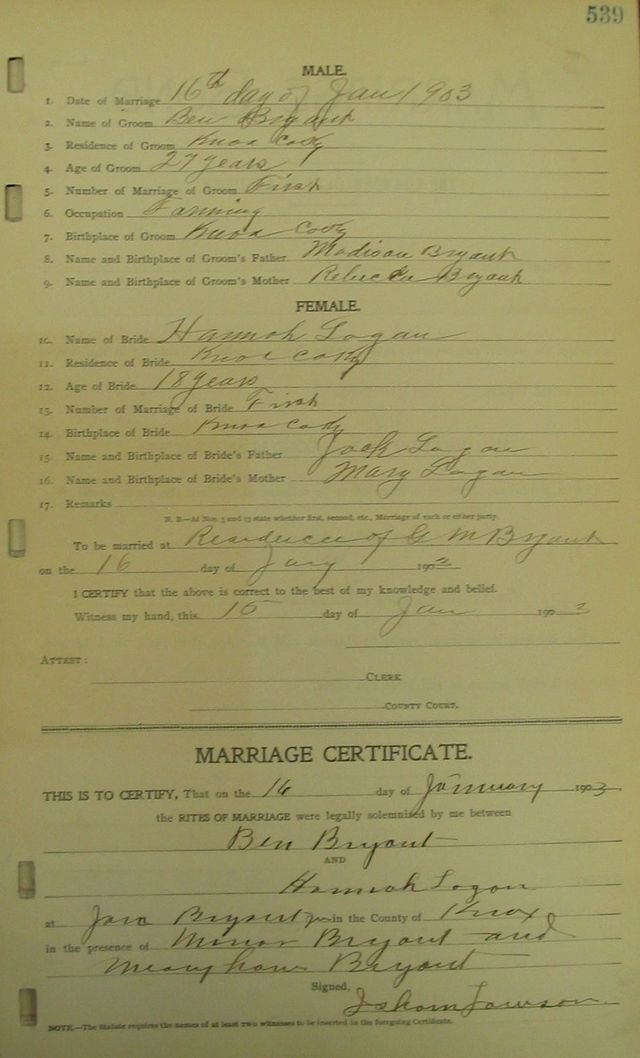 539
MALE.
1. Date of Marriage 16th day of Jan 1903
2. Name of Groom Ben Bryant
3. Residence of Groom Knox Coty
4. Age of Groom 27 years
5. Number of Marriage of Groom First
6. Occupation Farming
7. Birthplace of Groom Knox Coty
8. Name and Birthplace of Groom's Father Madison Bryant
9. Name and Birthplace of Groom's Mother Rebecca Bryant
FEMALE.
10. Name of Bride Hannah Logan
11. Residence of Bride Knox Coty
12. Age of Bride 18 years
13. Number of Marriage of Bride First
14. Birthplace of Bride Knox Coty
15. Name and Birthplace of Bride's Father Jack Logan
16. Name and Birthplace of Bride's Mother Mary Logan
17. Remarks
N. B.—At Nos. 5 and 13 state whether first, second, etc., Marriage of each or either party.
To be married at Residence of G M Bryant
on the 16 day of Jany 190
I CERTIFY that the above is correct to the best of my knowledge and belief.
Witness my hand, this 15 day of Jan 190
ATTEST:
CLERK
COUNTY COURT.
MARRIAGE CERTIFICATE.
THIS IS TO CERTIFY, That on the 16 day of January 1903
the RITES OF MARRIAGE were legally solemnized by me between
Ben Bryant
AND
Hannah Logan
at Bryant in the County of Knox
in the presence of Minor Bryant and
Bryant
Signed, Isham Lawson
NOTE.—The Statute requires the names of at least two witnesses to be inserted in the foregoing Certificate.